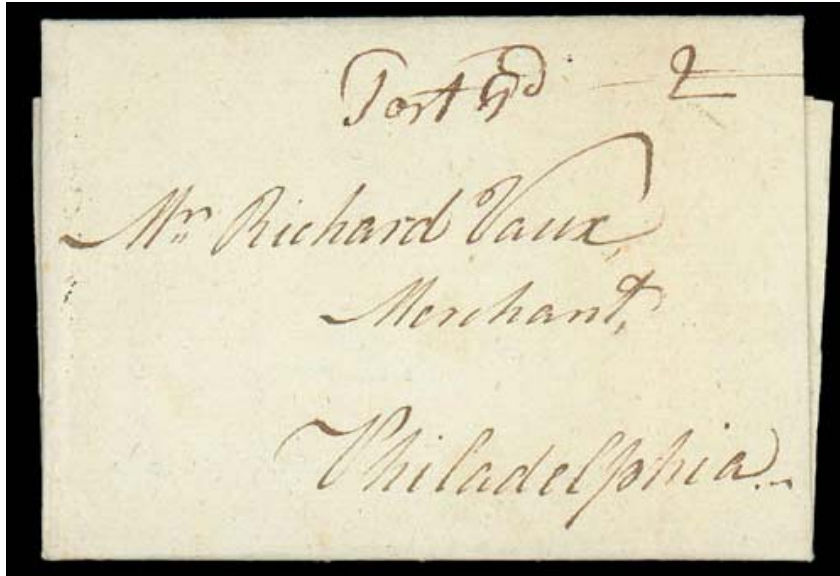 Port pd 2
Mr. Richard Vaux,
Merchant,
Philadelphia.